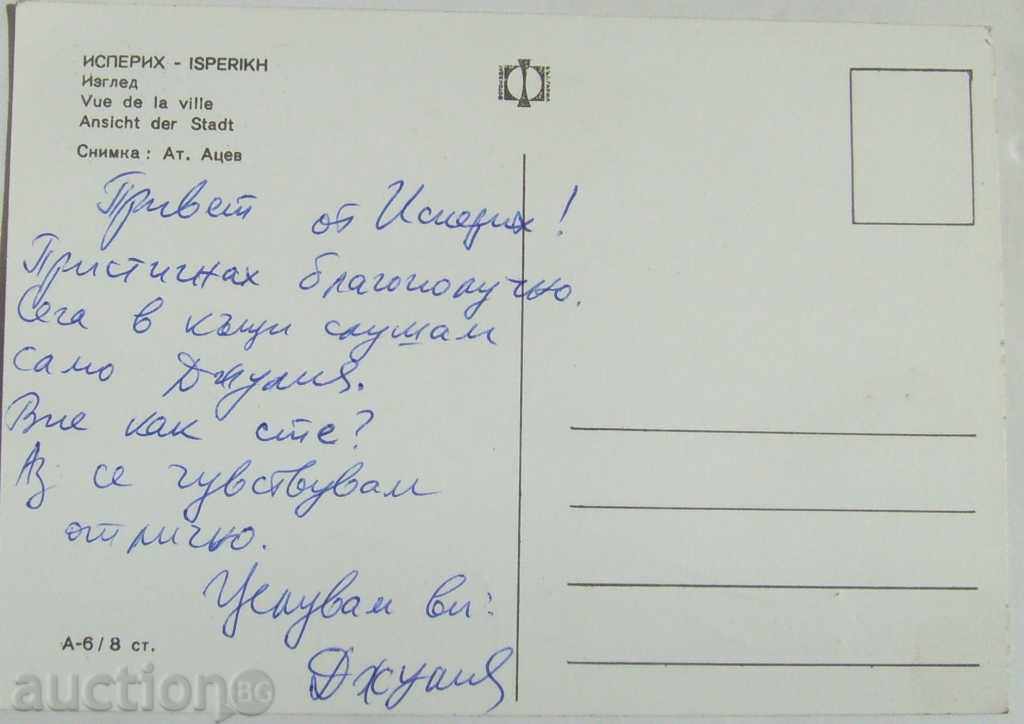 ИСПЕРИХ - ISPERIKH
Изглед
Vue de la ville
Ansicht der Stadt
Снимка : Ат. Ацев
Привет от Исперих!
Пристигнах благополучно.
Сега в къщи слушам
само Джулия.
Вие как сте?
Аз се чувствувам
отлично.
Целувам ви:
Джулия
А-6/8 ст.
auction BG